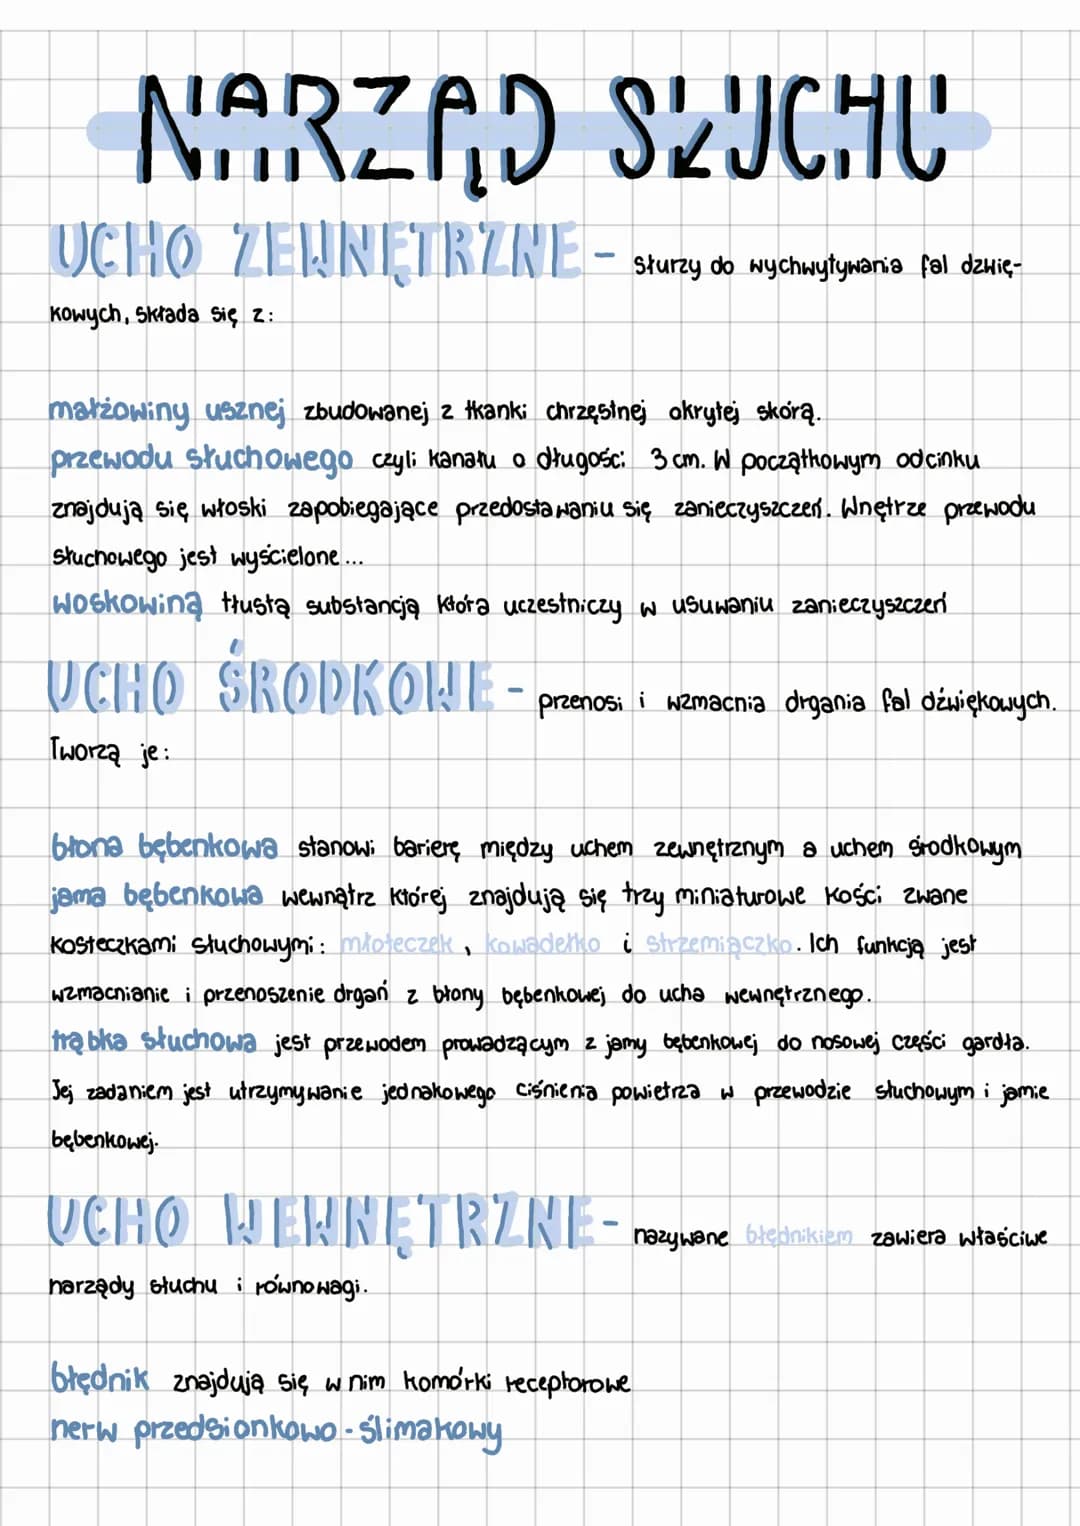 NARZĄD SŁUCHU
UCHO ZEWNĘTRZNE - słurzy do wychwytywania fal dzwię-
kowych, składa się z:
małżowiny usznej zbudowanej z tkanki chrzęstnej okrytej skórą.
przewodu słuchowego czyli kanału o długości 3 cm. W początkowym odcinku
znajdują się włoski zapobiegające przedostawaniu się zanieczyszczeń. Wnętrze przewodu
słuchowego jest wyścielone...
woskowiną tłustą substancją która uczestniczy w usuwaniu zanieczyszczeń
UCHO ŚRODKOWE - przenosi i wzmacnia drgania fal dźwiękowych.
Tworzą je:
błona bębenkowa stanowi barierę między uchem zewnętrznym a uchem środkowym
jama bębenkowa wewnątrz której znajdują się trzy miniaturowe kości zwane
kosteczkami słuchowymi: młoteczek, kowadełko i strzemiączko. Ich funkcją jest
wzmacnianie i przenoszenie drgań z błony bębenkowej do ucha wewnętrznego.
trąbka słuchowa jest przewodem prowadzącym z jamy bębenkowej do nosowej części gardła.
Jej zadaniem jest utrzymywanie jednakowego ciśnienia powietrza w przewodzie słuchowym i jamie
bębenkowej.
UCHO WEWNĘTRZNE - nazywane błędnikiem zawiera właściwe
narządy słuchu i równowagi.
błędnik znajdują się w nim komórki receptorowe
nerw przedsionkowo - ślimakowy